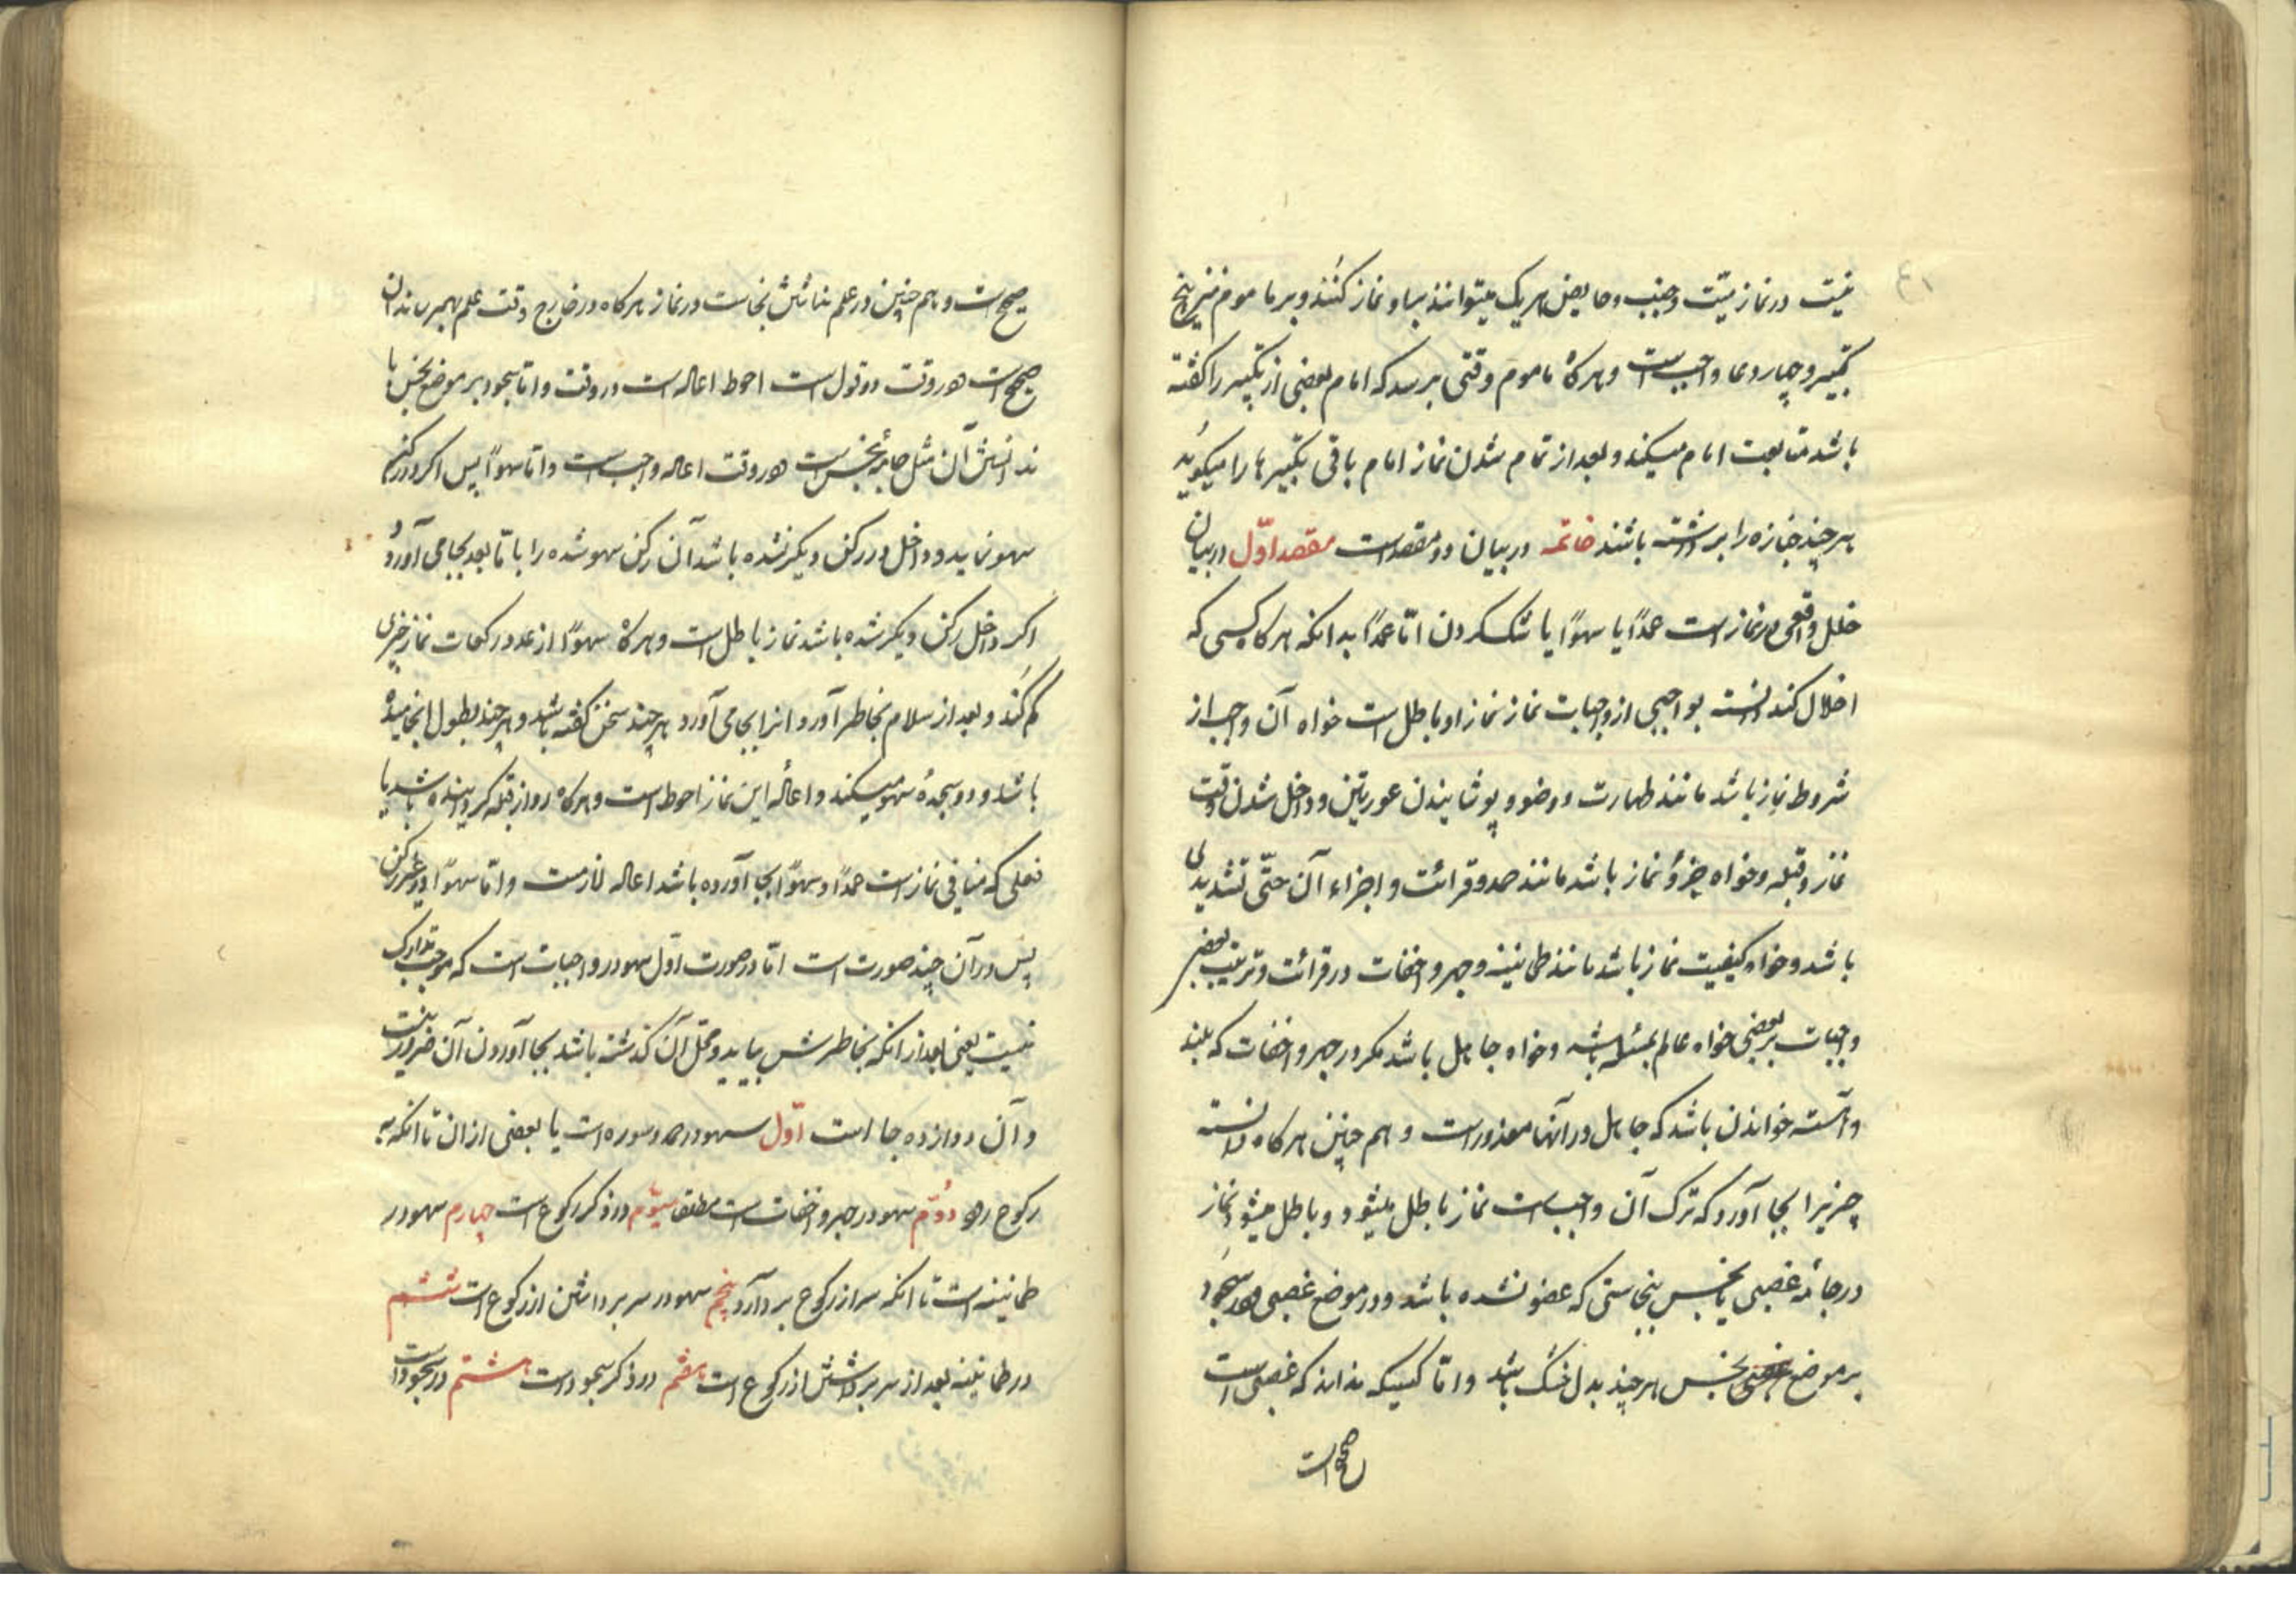 نیت در نماز میّت و جنب و حایض هر یک میتوانند بر او نماز کنند و بر ماموم نیز پنج
تکبیر و چهار دعا واجب است و هرگاه ماموم وقتی برسد که امام بعضی از تکبیر را گفته
باشد متابعت امام میکند و بعد از تمام شدن نماز امام باقی تکبیرها را میکوید
هر چند جنازه را برداشته باشند خاتمه در بیان دو مقصد است مقصد اوّل در بیان
خلل واقعی در نماز است عمدًا یا سهوًا یا شک کردن امّا عمدًا بدانکه هرکاه کسی که
اخلال کند دانسته بواجبی از واجبات نماز نماز او باطل است خواه آن واجب از
شروط نماز باشد مانند طهارت و وضو و پوشانیدن عورتین و داخل شدن وقت
نماز و قبله و خواه جزؤ نماز باشد مانند حمد و قرائت و اجزاء آن حتّی تشدیدی
باشد و خواه کیفیت نماز باشد مانند طمانینه و جهر و اخفات در قرائت و ترتیب بعضی
واجبات بر بعضی خواه عالم بمسئله باشد و خواه جاهل باشد مکر در جهر و اخفات که بلند
و آهسته خواندن باشد که جاهل در آنها معذور است و هم چنین هرکاه دانسته
چیزیرا بجا آورد که ترک آن واجب است نماز باطل میشود و باطل میشود نماز
در جامهٔ غصبی یا نجس بنجاستی که عفو نشده باشد و در موضع غصبی و در سجود
بر موضع نجس هر چند بدل خشک باشد و امّا کسیکه نداند که غصبی است
صحیح است
صحیح است و هم چنین در علم نداشتن نجاست در نماز هرکاه در خارج وقت علم بهم رساند آن
صحیح است و در وقت دو قول است احوط اعاده است در وقت و امّا سجود بر موضع نجس با
ندانستن آن مثل جامهٔ نجس است و در وقت اعاده واجب است و امّا سهوًا پس اکر در رکنی
سهو نماید و داخل در رکن دیکر نشده باشد آن رکن سهو شده را با مّا بعد بجا می آورد و
اکر داخل رکن دیکر شده باشد نماز باطل است و هرکاه سهوًا از عدد رکعات نماز چیزی
کم کند و بعد از سلام بخاطر آورد آنرا بجا می آورد هر چند سخن کفته باشد و هر چند بطول انجامیده
باشد و دو سجدهٔ سهو میکند و اعادهٔ این نماز احوط است و هرکاه رو از قبله کردانیده باشد یا
فعلی که منافی نماز است عمدًا و سهوًا بجا آورده باشد اعاده لازمست و امّا سهوًا در غیر رکن
پس در آن چند صورت است امّا در صورت اوّل سهو در واجبات است که موجب تدارک
نیست یعنی بعد از انکه بخاطرش بیاید و محل آن کذشته باشد بجا آوردن آن ضرور نیست
و آن دوازده جا است اوّل سهو در حمد و سوره است یا بعضی از ان تا انکه به
رکوع رود دوّم سهو در جهر و اخفات است مطلقا سیّوم در ذکر رکوع است چهارم سهو در
طمانینه است تا انکه سر از رکوع بردارد پنجم سهو در سر برداشتن از رکوع است ششم
در طمانینه بعد از سر برداشتن از رکوع است هفتم در ذکر سجود است هشتم در سجود است